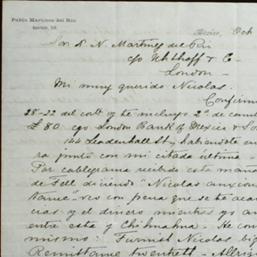 Pablo Martinez del Rio
Mexico, Oct
Sr. N. N. Martinez del Rio
c/o Uhthoff & Co
London
Mi muy querido Nicolas.
Confirm
28-22 del cort y te incluyo 2ª de camb
£80 c/o London Bank of Mexico & So
144 Leadenhall St y habiendote en
ra junto con mi citada ultima
Por cablegrama recibido esta maña
de Fell diciendo "Nicolas anxiou
" veo con pena que se te aca
cias y el dinero mientras yo an
entre esta y Chihuahua. He con
mismo: Furnish Nicolas
Remittance twentieth. All